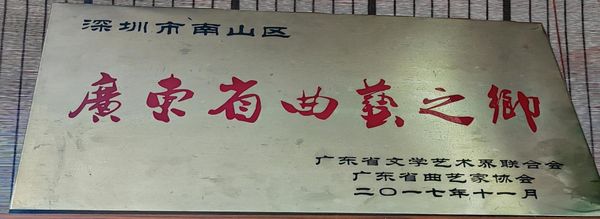 深圳市南山区
廣東省曲藝之鄉
广东省文学艺术界联合会
广东省曲艺家协会
二〇一七年十一月